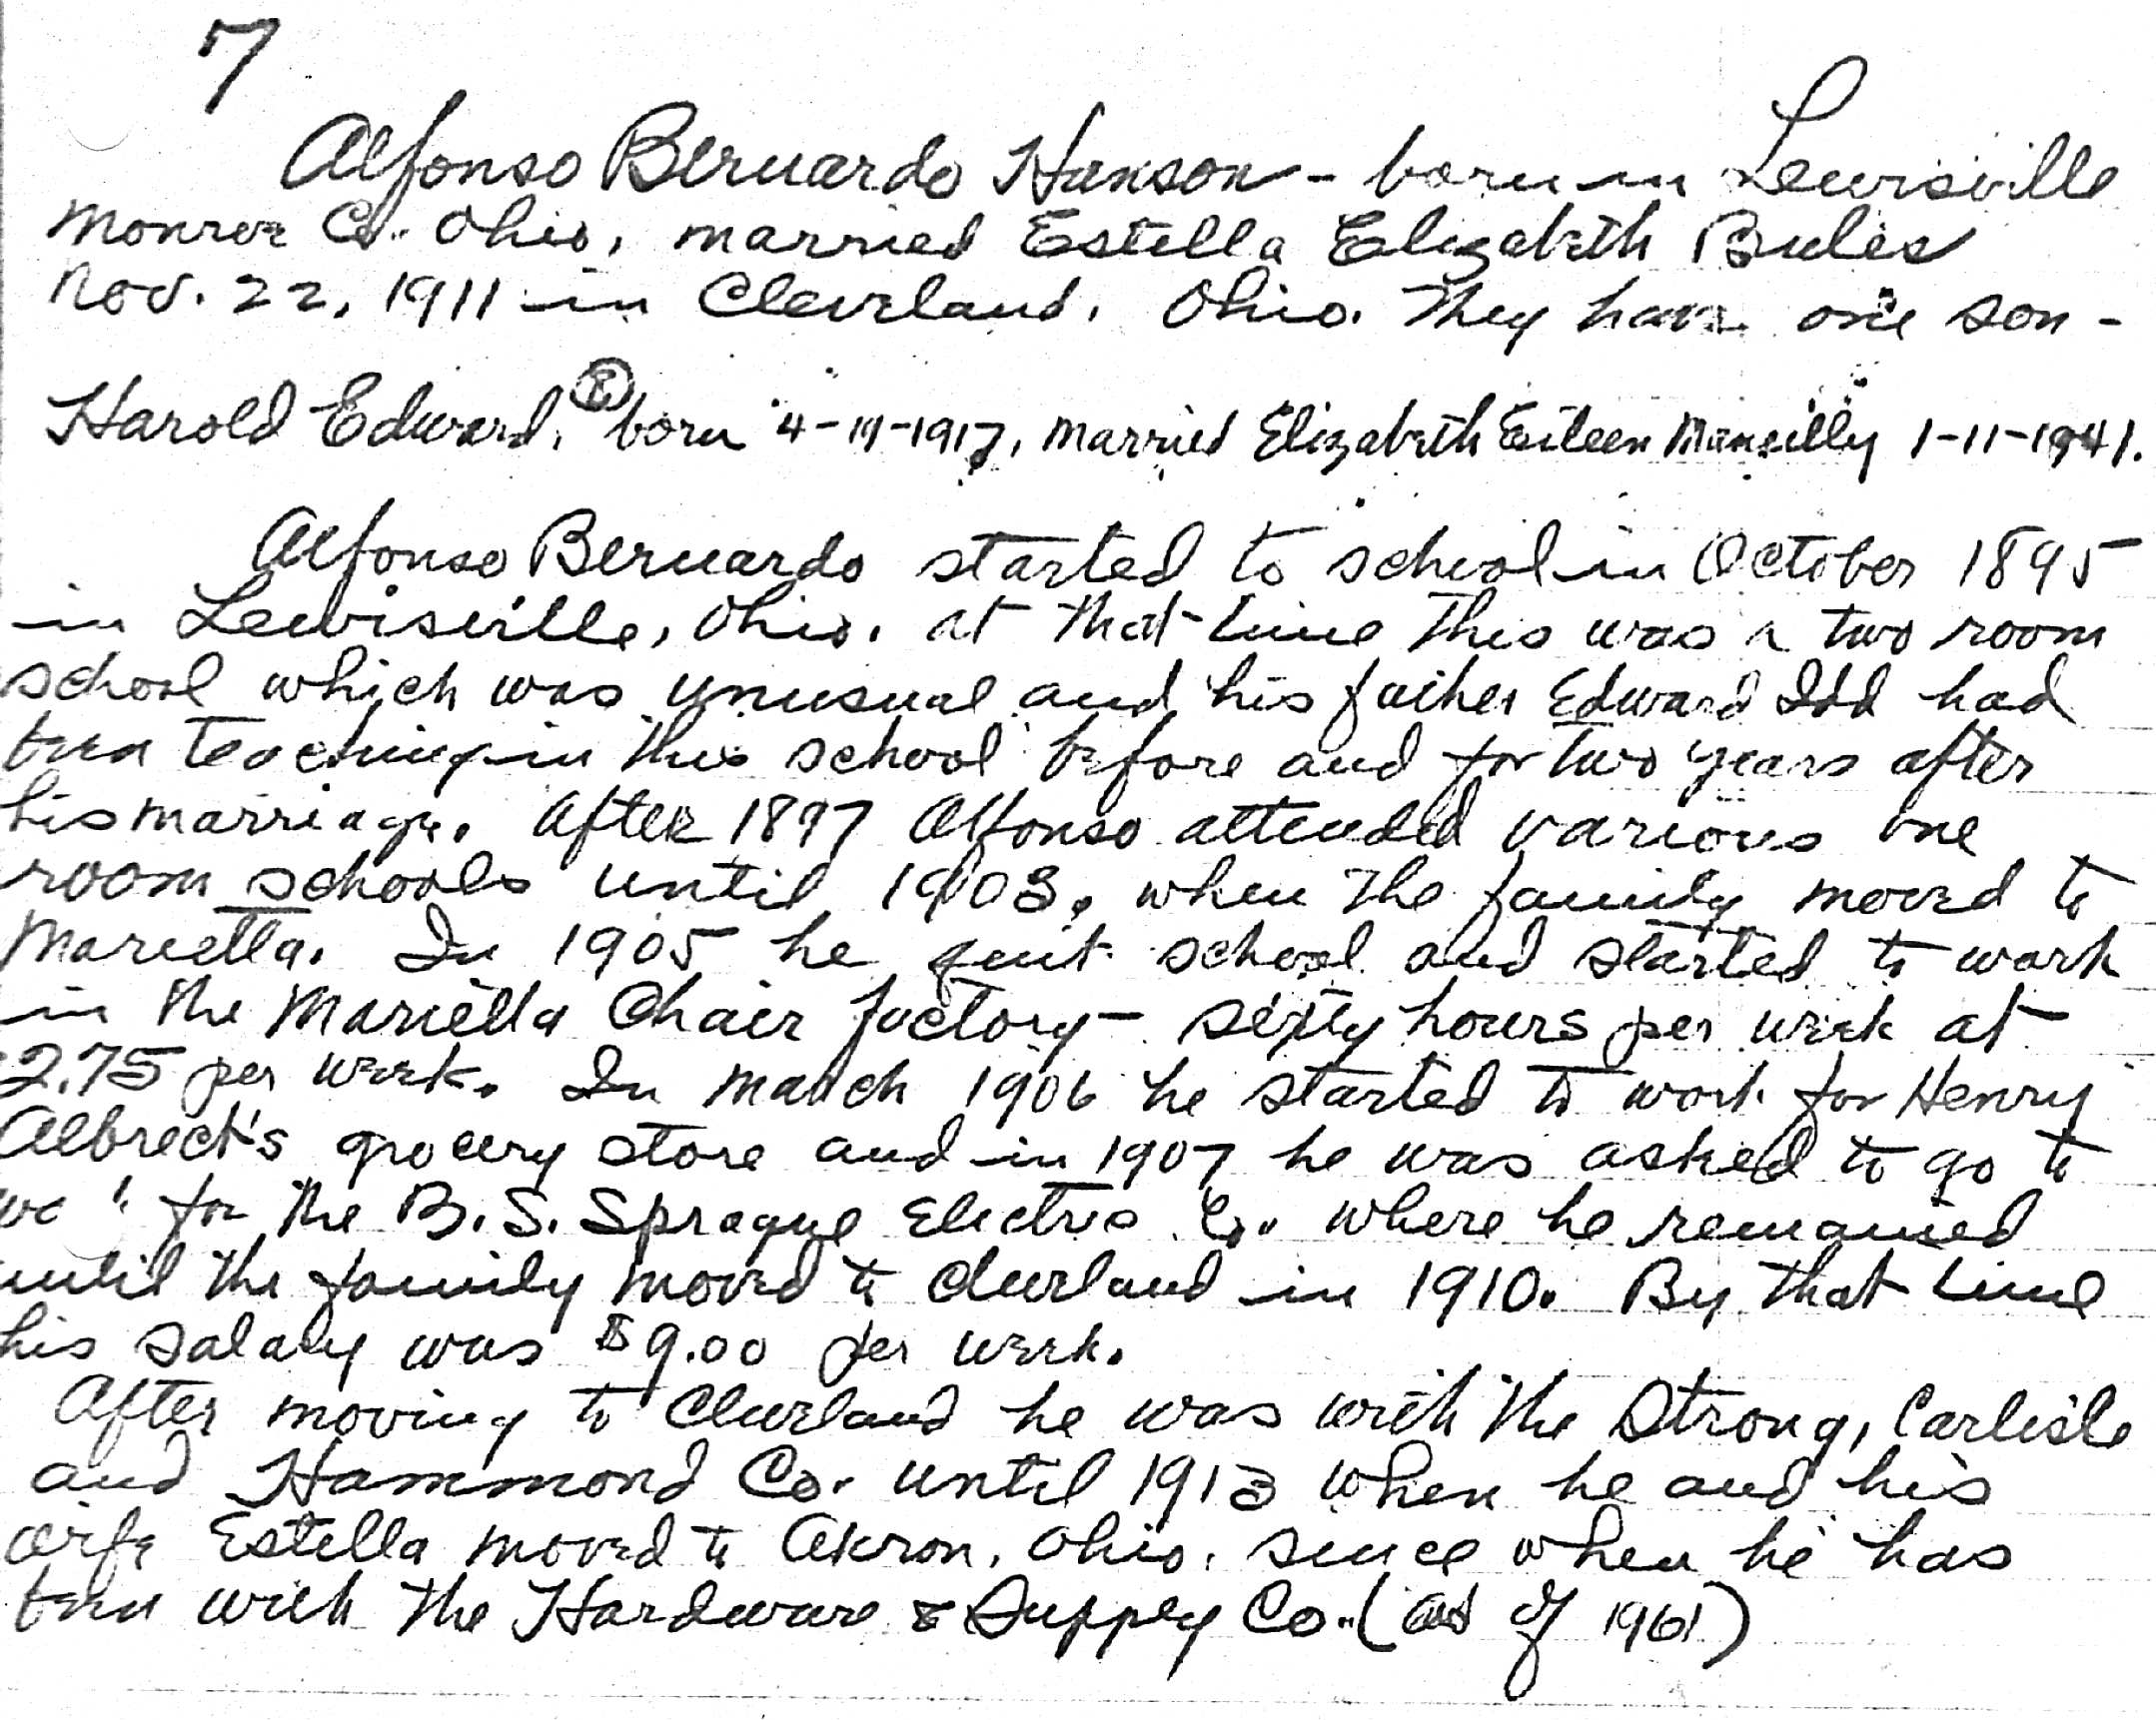 7
Alfonso Bernardo Hanson - born in Lewisville
Monroe Co. Ohio, married Estella Elizabeth
Nov. 22, 1911 in Cleveland, Ohio. They have one son -
Harold Edward, born 4-19-1917, married Elizabeth Eileen 1-11-1941.
Alfonso Bernardo started to school in October 1895
in Lewisville, Ohio. at that time this was a two room
school which was unusual and his father Edward Idd had
been teaching in this school before and for two years after
his marriage. After 1897 Alfonso attended various one
room schools until 1903, when the family moved to
Marietta. In 1905 he quit school and started to work
in the Marietta Chair factory - sixty hours per week at
2.75 per week. In March 1906 he started to work for Henry
Albrect's grocery store and in 1907 he was asked to go to
for the B.S. Sprague Electric Co. where he remained
until the family moved to Cleveland in 1910. By that time
his salary was $9.00 per week.
After moving to Cleveland he was with the Strong, Carlisle
and Hammond Co. until 1913 when he and his
wife Estella moved to Akron, Ohio, since when he has
been with the Hardware & Supply Co. (as of 1961)